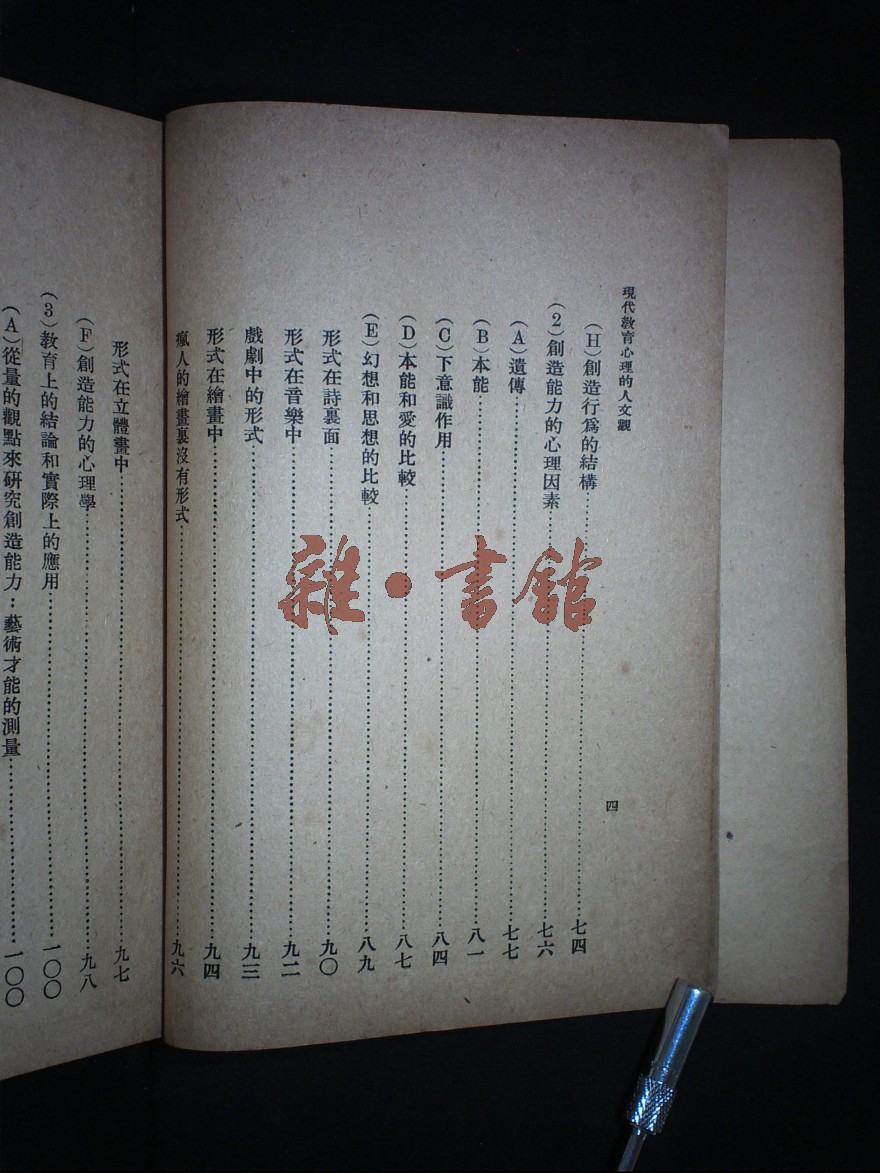 現代教育心理的人文觀
四
(H)創造行爲的結構……七四
(2)創造能力的心理因素……七六
(A)遺傳……七七
(B)本能……八一
(C)下意識作用……八四
(D)本能和愛的比較……八七
(E)幻想和思想的比較……八九
形式在詩裏面……九〇
形式在音樂中……九二
戲劇中的形式……九三
形式在繪畫中……九四
瘋人的繪畫裏沒有形式……九六
形式在立體畫中……九七
(F)創造能力的心理學……九八
(3)教育上的結論和實際上的應用……一〇〇
(A)從量的觀點來研究創造能力：藝術才能的測量……一〇〇
雜·書館